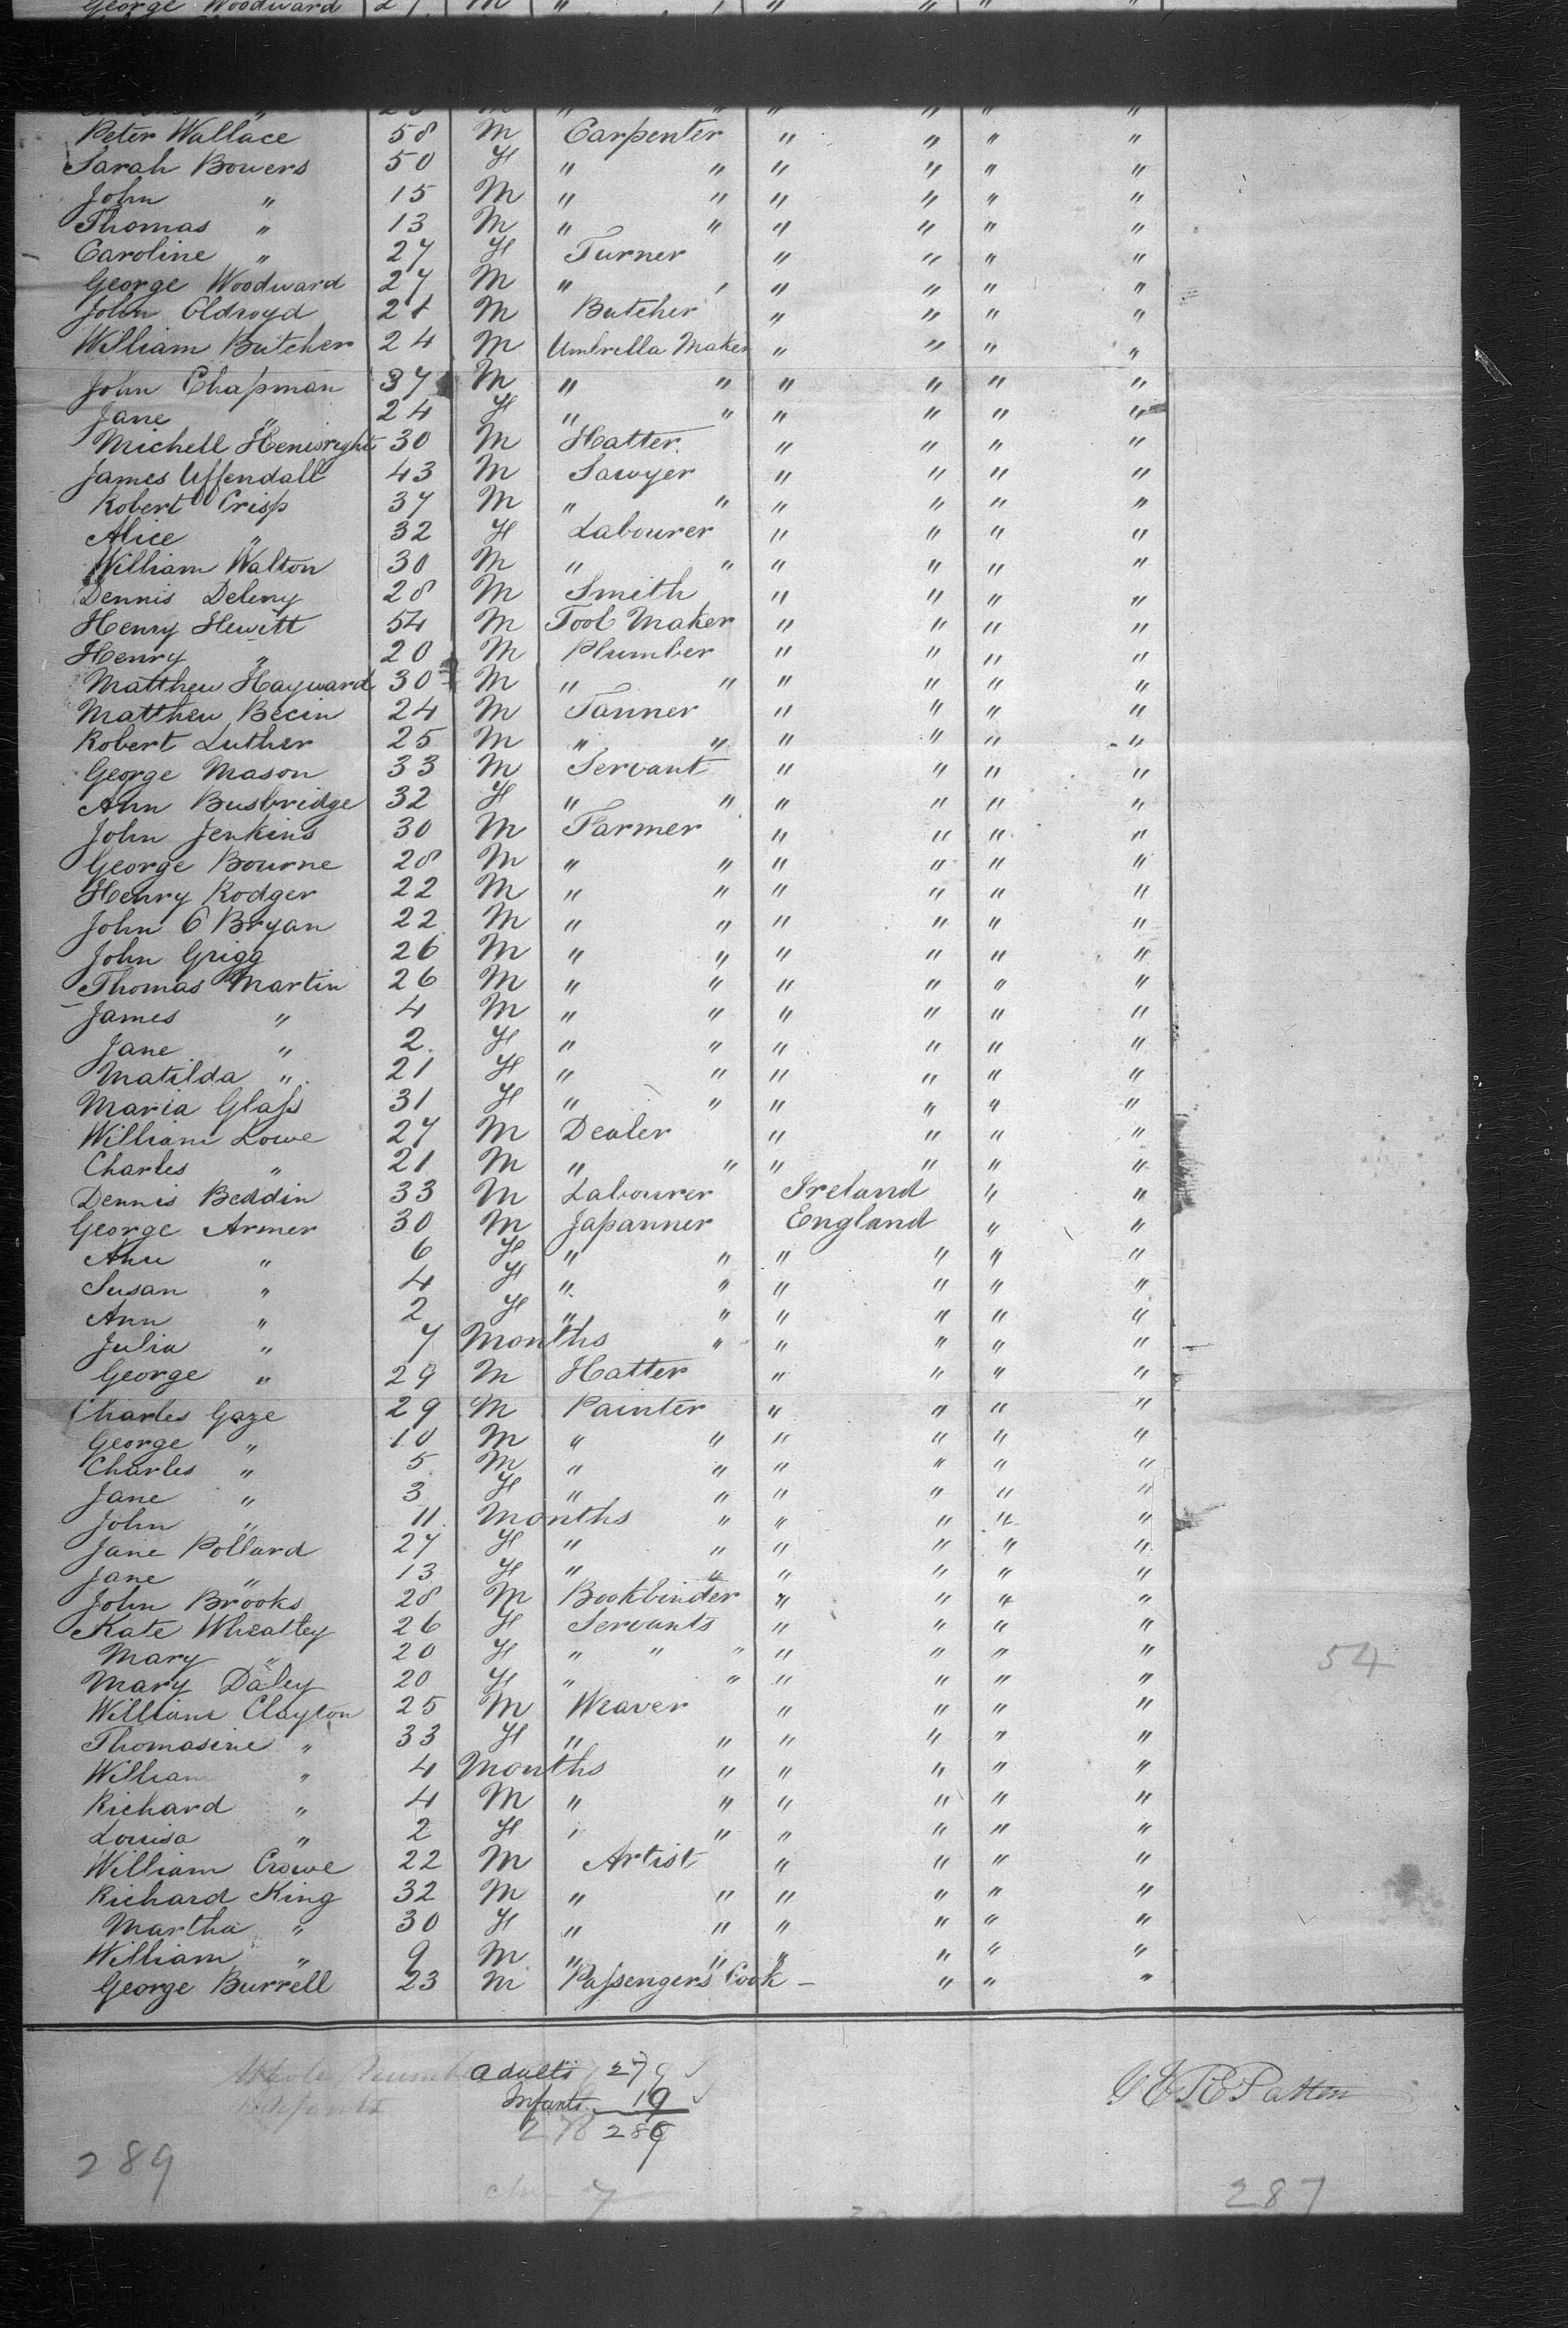 George Woodward 27 M " , " " " "
Peter Wallace 58 M Carpenter " " " "
Sarah Bowers 50 F " " " " " "
John " 15 M " " " " " "
Thomas " 13 M " " " " " "
Caroline " 27 F Turner " " " "
George Woodward 27 M " , " " " "
John Oldroyd 21 M Butcher " " " "
William Butcher 24 M Umbrella Maker " " " "
John Chapman 37 M " " " " " "
Jane " 24 F " " " " " "
Michell Heniwright 30 M Hatter " " " "
James Uffendall 43 M Sawyer " " " "
Robert Crisp 37 M " " " " " "
Alice " 32 F Labourer " " " "
William Walton 30 M " " " " " "
Dennis Deleny 28 M Smith " " " "
Henry Hewitt 54 M Tool Maker " " " "
Henry " 20 M Plumber " " " "
Matthew Hayward 30 M " " " " " "
Matthew Becin 24 M Tanner " " " "
Robert Luther 25 M " " " " " "
George Mason 33 M Servant " " " "
Ann Busbridge 32 F " " " " " "
John Jenkins 30 M Farmer " " " "
George Bourne 28 M " " " " " "
Henry Rodger 22 M " " " " " "
John O Bryan 22 M " " " " " "
John Grigg 26 M " " " " " "
Thomas Martin 26 M " " " " " "
James " 4 M " " " " " "
Jane " 2 F " " " " " "
Matilda " 21 F " " " " " "
Maria Glass 31 F " " " " " "
William Lowe 27 M Dealer " " " "
Charles " 21 M " " " " " "
Dennis Beddin 33 M Labourer Ireland " "
George Armer 30 M Japanner England " "
Ann " 6 F " " " " " "
Susan " 4 F " " " " " "
Ann " 2 F " " " " " "
Julia " 7 Months " " " " "
George " 29 M Hatter " " " "
Charles Gaze 29 M Painter " " " "
George " 10 M " " " " " "
Charles " 5 M " " " " " "
Jane " 3 F " " " " " "
John " 11 Months " " " " "
Jane Pollard 27 F " " " " " "
Jane " 13 F " " " " " "
John Brooks 28 M Bookbinder " " " "
Kate Wheatley 26 F Servants " " " "
Mary " 20 F " " " " " " " 54
Mary Daley 20 F " " " " " "
William Clayton 25 M Weaver " " " "
Thomasine " 33 F " " " " " "
William " 4 Months " " " " "
Richard " 4 M " " " " " "
Louisa " 2 F " " " " " "
William Crowe 22 M Artist " " " "
Richard King 32 M " " " " " "
Martha " 30 F " " " " " "
William " 9 M " " " " " "
George Burrell 23 M Passengers Cook - " " "
Adults 279
Infants 19
278 286
289
287